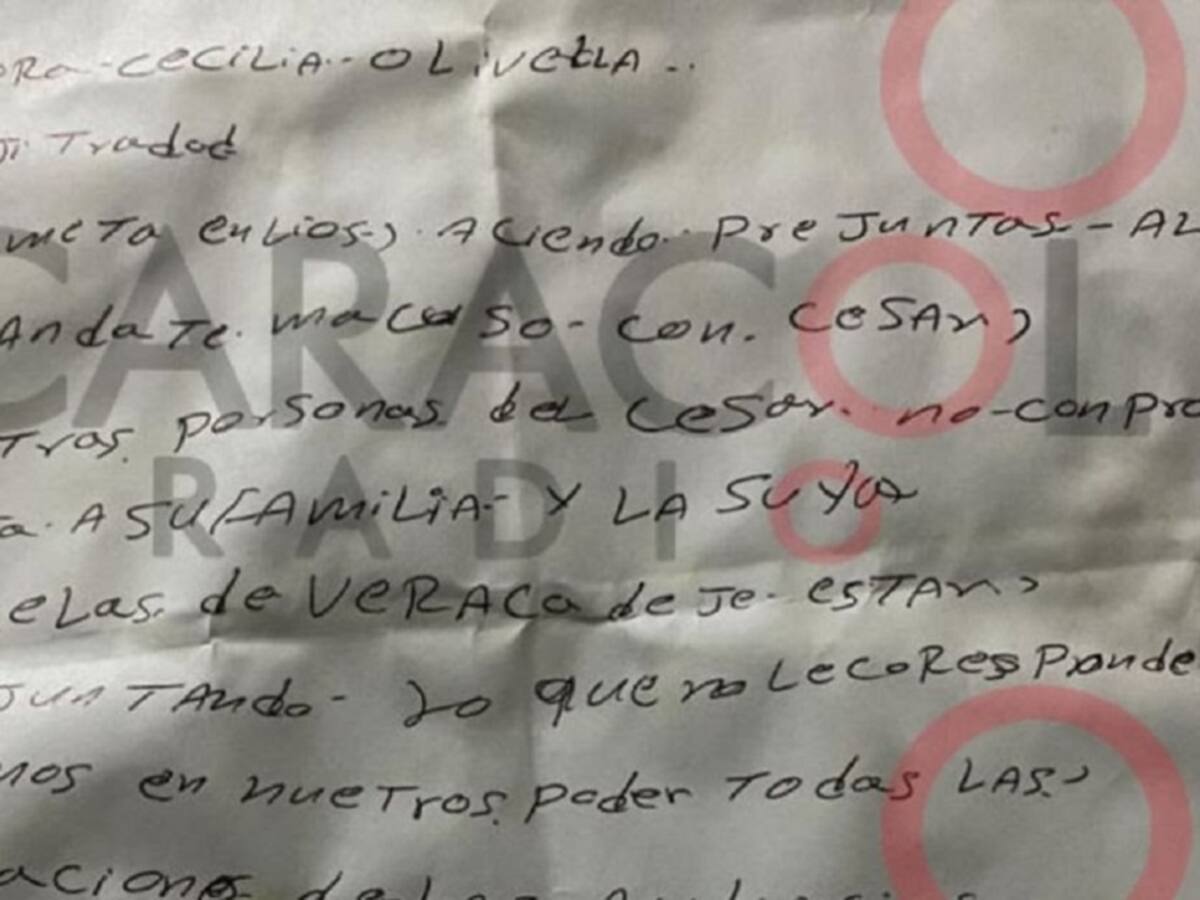 ORA-CECILIA-OLIVELLA..
Tradad
META enLios, Aciendo PreJUNTAS-AL
AndaTe macaso-con. CeSAr,
Tras personas del CeSar. no-conpro
Ta. A SU FAMiLiA- Y LA SU ya
eLas de VERACa deJe estar,
JUNTAndo- Lo que no Le coResponde
nos en nuetros poder Todas LAS,
aciones de Las
CARACOL
RADIO